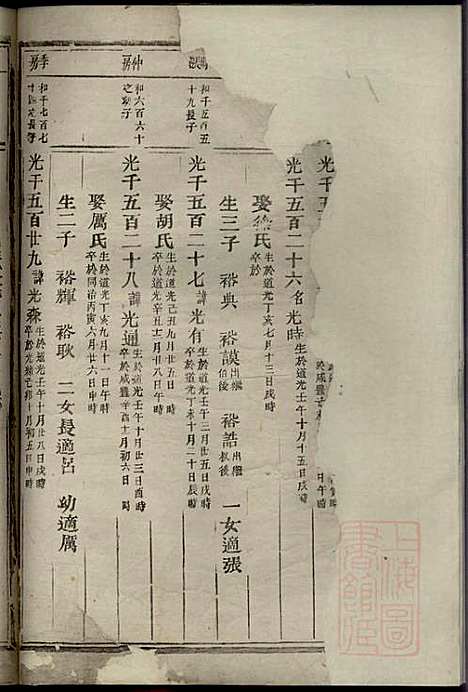 光千五
於咸豐
日午時
光千五百二十六名光時生於道光壬午十月十五日戌時
娶徐氏生於道光丁亥七月十三日戌時
卒於
生三子 裕典 裕謨出繼伯後 裕誥出繼叔後 一女適張
和千五百五十九長子
光千五百二十七諱光有生於道光壬午三月廿五日戌時
卒於道光丁未十月二十日辰時
娶胡氏生於道光己丑九月廿五日
卒於道光辛丑十二月廿八日午時
仲房
和六百六十之幼子
光千五百二十八諱光通生於道光壬午十月廿三日酉時
卒於咸豐辛酉十一月初六日時
娶厲氏生於道光丁亥九月十一日午時
卒於同治丙寅六月廿六日申時
生二子 裕輝 裕耿 二女長適呂 幼適厲
季房
和千七百七十四長子
光千五百廿九諱光森生於道光壬午十月廿八日戌時
卒於光緒己卯十月初五日申時
上海圖書館藏